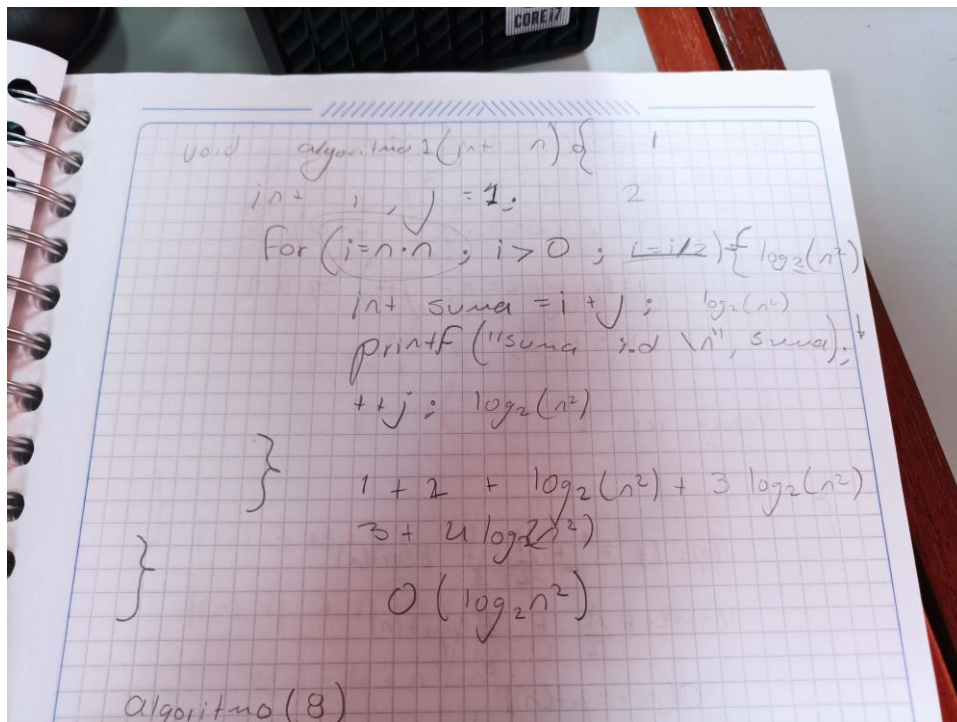 CORE i7
void algoritmo1(int n){ 1
int i, j = 1; 2
for (i=n·n ; i > 0 ; i=i/2){ log₂(n²)
int suma = i + j ; log₂(n²)
printf ("suma %d \n", suma); ↓
++j ; log₂(n²)
}
1 + 2 + log₂(n²) + 3 log₂(n²)
3 + 4 log₂(n²)
}
O(log₂n²)
algoritmo(8)